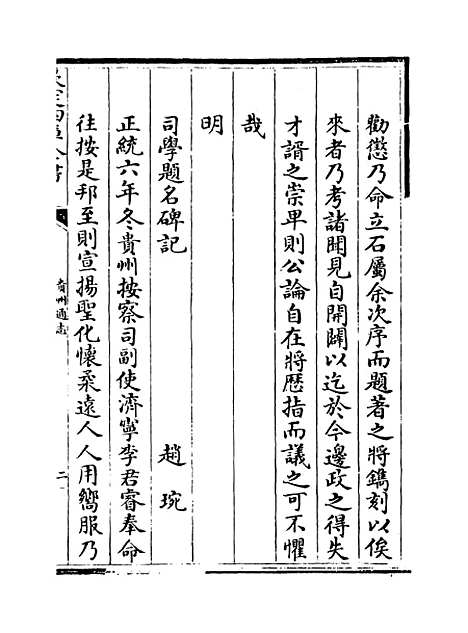 勸懲乃命立石屬余次序而題著之將鐫刻以俟
來者乃考諸聞見自開闢以迄於今邊政之得失
才諝之崇卑則公論自在將歷指而議之可不懼
哉
明
司學題名碑記　趙琬
正統六年冬貴州按察司副使濟寧李君睿奉命
往按是邦至則宣揚聖化懷柔遠人人用嚮服乃
欽定四庫全書
貴州通志
二